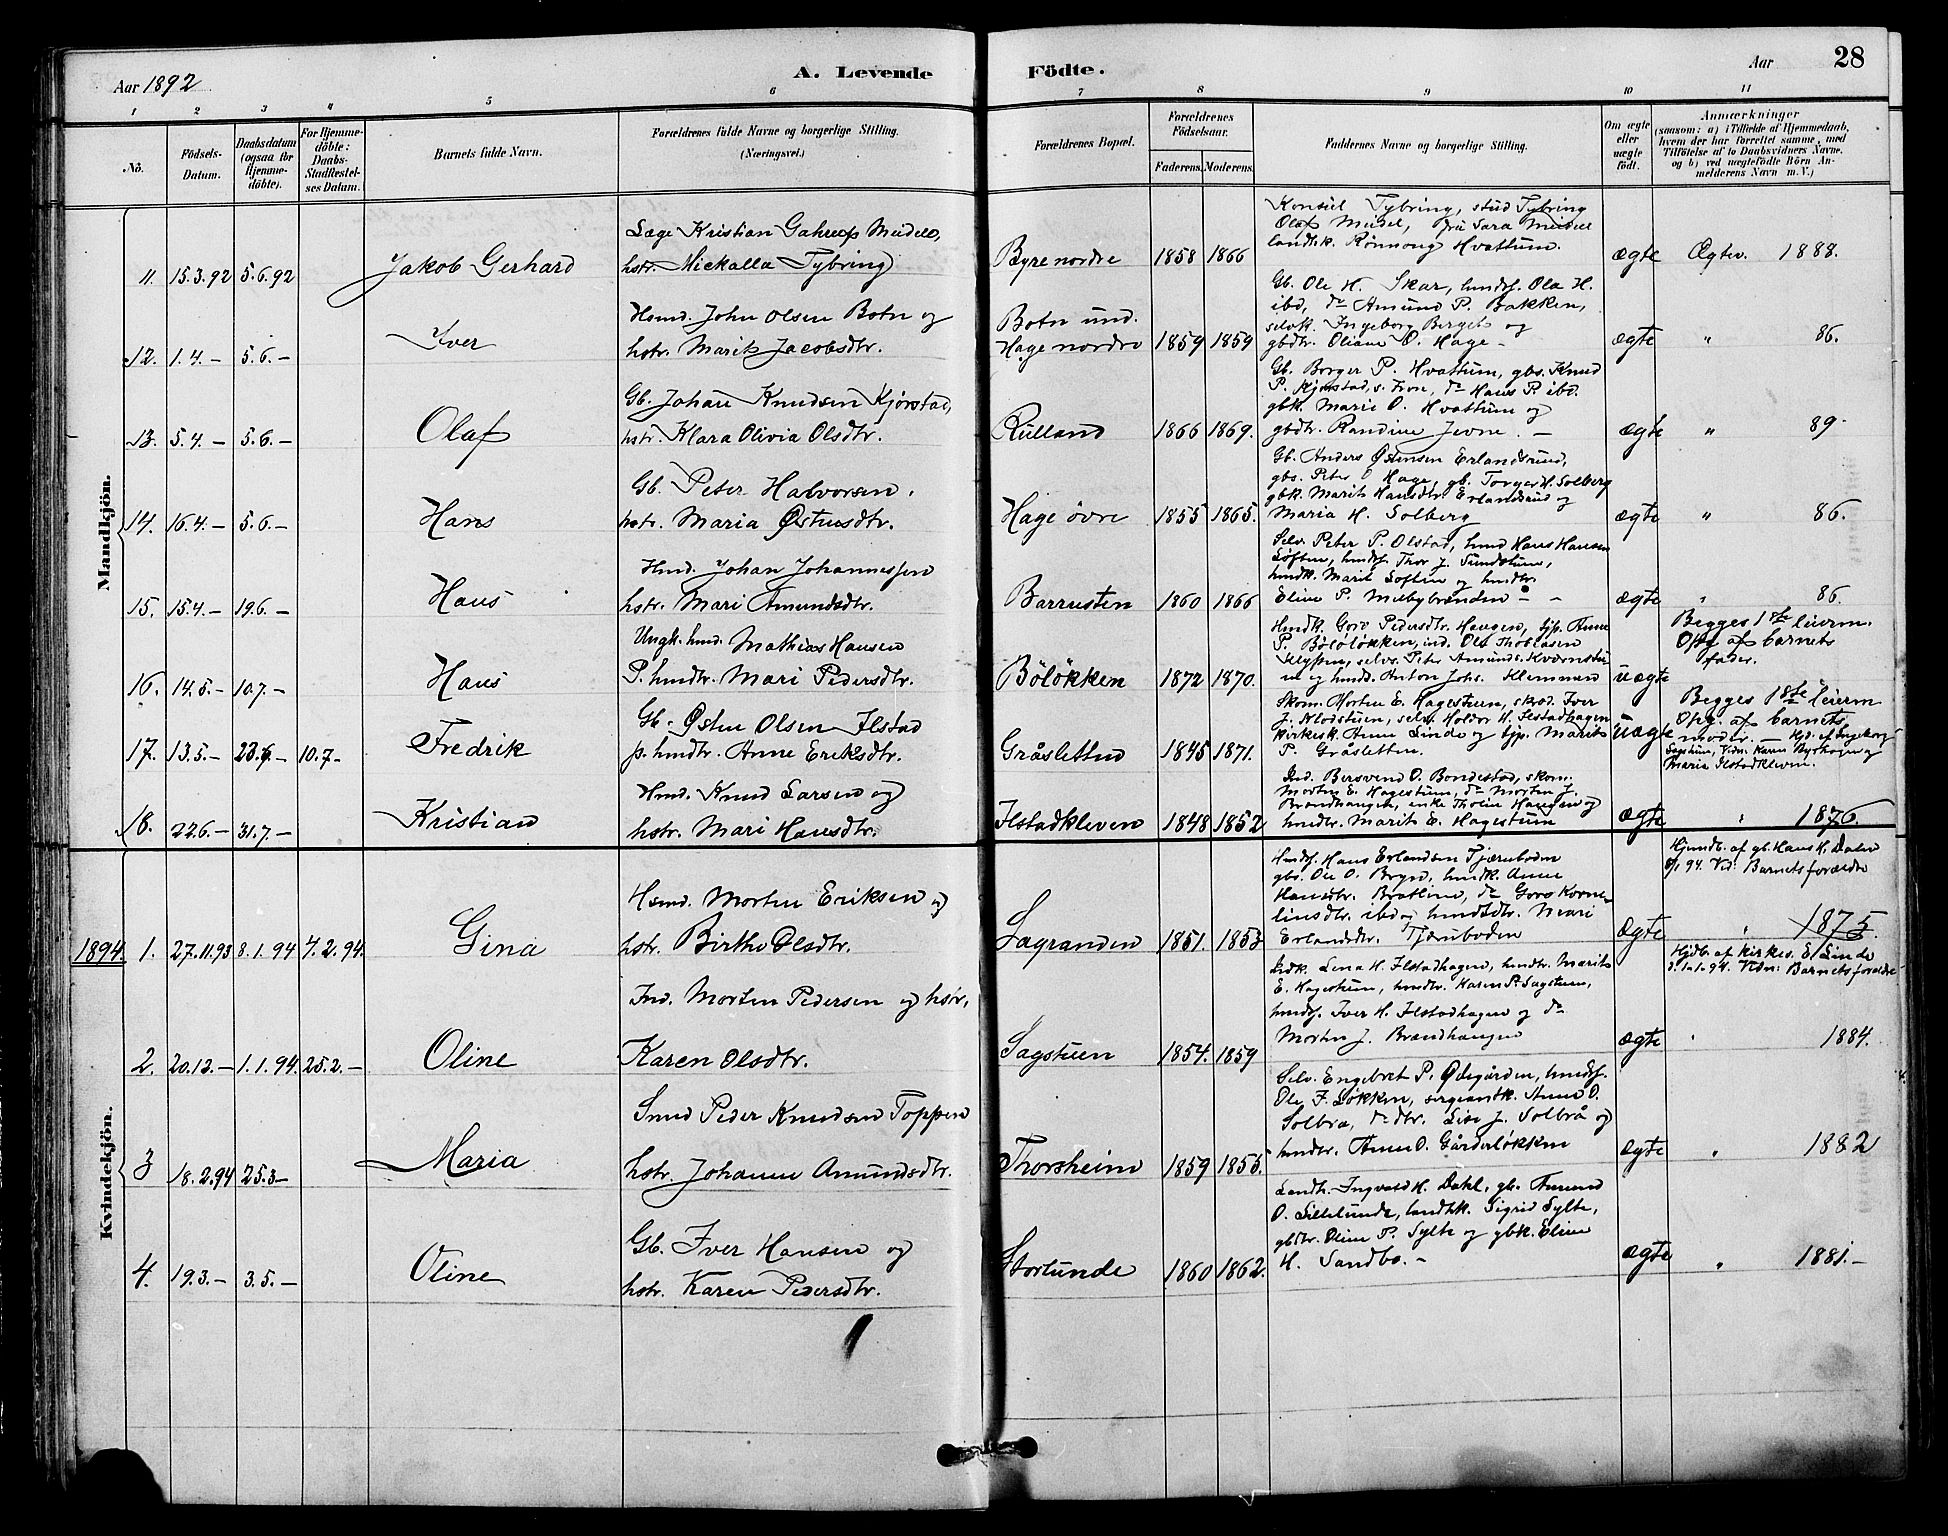 Aar 1892
A. Levende Födte.
Aar 28
1 2 3 4 5 6 7 8 9 10 11
No.
Födsels-Datum.
Daabsdatum (ogsaa for Hjemme-döbte).
For Hjemme-döbte: Daabs-Stadfæstel-ses Datum.
Barnets fulde Navn.
Forældrenes fulde Navne og borgerlige Stilling.
(Næringsvei.)
Forældrenes Bopæl.
Forældrenes Födselsaar.
Faderens. Moderens.
Faddernes Navne og borgerlige Stilling.
Om ægte eller uægte födt.
Anmærkninger
(saasom: a) i Tilfælde af Hjemmedaab,
hvem der har forrettet samme, med
Tilföielse af to Daabsvidners Navne,
og b) ved uægtefödte Börn An-
melderens Navn m. V.)
Mandkjön.
11. 15.3.92 5.6.92 Jakob Gerhard
Læge Kristian Gahrup Meidell,
hstr. Mickalla Tybring
Byre nordre 1858 1866
Konsul Tybring, stud Tybring
Olaf Meidel, fru Sara Meidel
landhk. Rønnoug Hvattum.
ægte Ægtev. 1888.
12. 1.4.- 5.6.- Iver
Hsmd. John Olsen Botn og
hstr. Marit Jacobsdtr.
Botn und.
Hage nordre 1859 1859
Gb. Ole H. Skar, hmdsf. Ola H.
ibd, do Amund P. Bakken,
selvk. Ingeborg Berget og
gbdtr. Oliane O. Hage -
ægte " 86.
13. 5.4.- 5.6.- Olaf
Gb. Johan Knudsen Kjørstad,
hstr. Klara Olivia Olsdtr.
Rulland 1866 1869.
Gb. Borger P. Hvattum, gbs. Knud
P. Kjørstad, s. Fron, do Hans P. ibd.
gbk. Marie O. Hvattum og
gbdtr. Randine Jevne. -
ægte " 89.
14. 16.4.- 5.6.- Hans
Gb. Peter Halvorsen,
hstr. Maria Østensdtr.
Hage øvre 1855 1865.
Gb. Anders Østensen Erlandsrud,
gbs. Peter O Hage, gb. Torger H. Solberg
gbk. Marit Hansdtr. Erlandsrud og
Maria H. Solberg
ægte " 86.
15. 15.4.- 19.6.- Hans
Hmd. Johan Johannessen
hstr. Mari Amundsdtr.
Barrusten 1860 1866
Selv. Peter P. Olstad, hmd Hans Hansen
Løften, hmdsf. Thor J. Sundstuen,
hmdk. Marit Loften og hmdtr.
Eline P. Melbybrænden - -
ægte " 86.
16. 14.5.- 10.7.- Hans
Ungk. hmd. Mathias Hansen
P. hmdtr. Mari Pedersdtr.
Böløkken 1872 1870.
Hmdk. Goro Pedersdtr. Haugen, tjp. Anne
P. Böløløkken, ind. Ole Thorlasen
Klypen, selvs. Peter Amunds. Kværnstu
en og hmds. Anton Johs. Kleminen
uægte
Begges 1ste leierm.
Opg. af barnets
fader.
17. 13.5.- 23.6.- 10.7.- Fredrik
Gb. Østen Olsen Ilstad
p. hmdtr. Anne Eriksdtr.
Gråsletten 1845 1871.
Skom. Morten E. Hagestuen, skræd. Iver
J. Flodstuen, selv. Haldor H. Ilstadhagen
Kirkesk. Anne Linde og tjp. Marit
P. Gråsletten.
uægte
Begges 1ste leierm
Opg. af barnets
moder. - Hjd. af Ingeborg
Sagstuen, Vidn: Karen Byrhagen og
Maria Ilstadkleven.
18. 22.6.- 31.7.- Kristian
Hmd. Knud Larsen og
hstr. Mari Hansdtr.
Ilstadkleven 1848 1852
Ind. Bersvend O. Bondestad, skom.
Morten E. Hagestuen, do Morten J.
Brandhangen, enke Tholine Haugen og
hmdtr. Marit E. Hagestuen
ægte " 1876.
Kvindekjön.
1894 1. 27.11.93 8.1.94 7.2.94. Gina
Hsmd. Morten Eriksen og
hstr. Birthe Olsdtr.
Lagranden 1851. 1853
Hmdsf. Hans Erlandsen Tjærnboden
gbs. Ole O. Bryn, hmdk. Anne
Hansdtr. Bratlien, do Goro Korne-
liusdtr. ibd og hmdtdtr. Mari
Erlandsdtr. Tjærnboden
ægte
Hjemdb. af gb. Hans H. Dalen
8/1 94. Vid: Barnets forældre
" 1875.
2. 20.12.- 1.1.94. 25.2.- Oline
Ind. Morten Pedersen og hstr,
Karen Olsdtr.
Sagstuen 1854. 1859
Indk. Lena H. Ilstadhagen, hmdtr. Marit
E. Hagestuen, hmdtr. Karen P. Sagstuen,
hmdsf. Iver H. Ilstadhagen og do
Morten J. Brandhaugen
ægte
Hjdb. af kirkes. E. Linde
d. 1.1.94. Vidn: Barnets forældre
" 1884.
3 18.2.94 25.3- Maria
Smed Peder Knudsen Toppen
hstr. Johanne Amundsdtr.
Thorsheim 1859 1855
Selv. Engebret P. Ødegården, hmdsf.
Ole F. Løkken, sergeantk. Anne O.
Solbra, do dtr. Lise J. Solbrå og
hmdtr. Anne O. Gårderløkken
ægte " 1882
4. 19.3.- 3.5.- Oline
Gb. Iver Hansen og
hstr. Karen Pedersdtr.
Storlunde 1860 1862.
Landh. Ingvald H. Dahl, gb. Amund
O. Lillelunde, landhk. Sigrid Sylte,
gbdtr. Oline P. Sylte og gbk. Eline
H. Sandbo. -
ægte " 1881.-